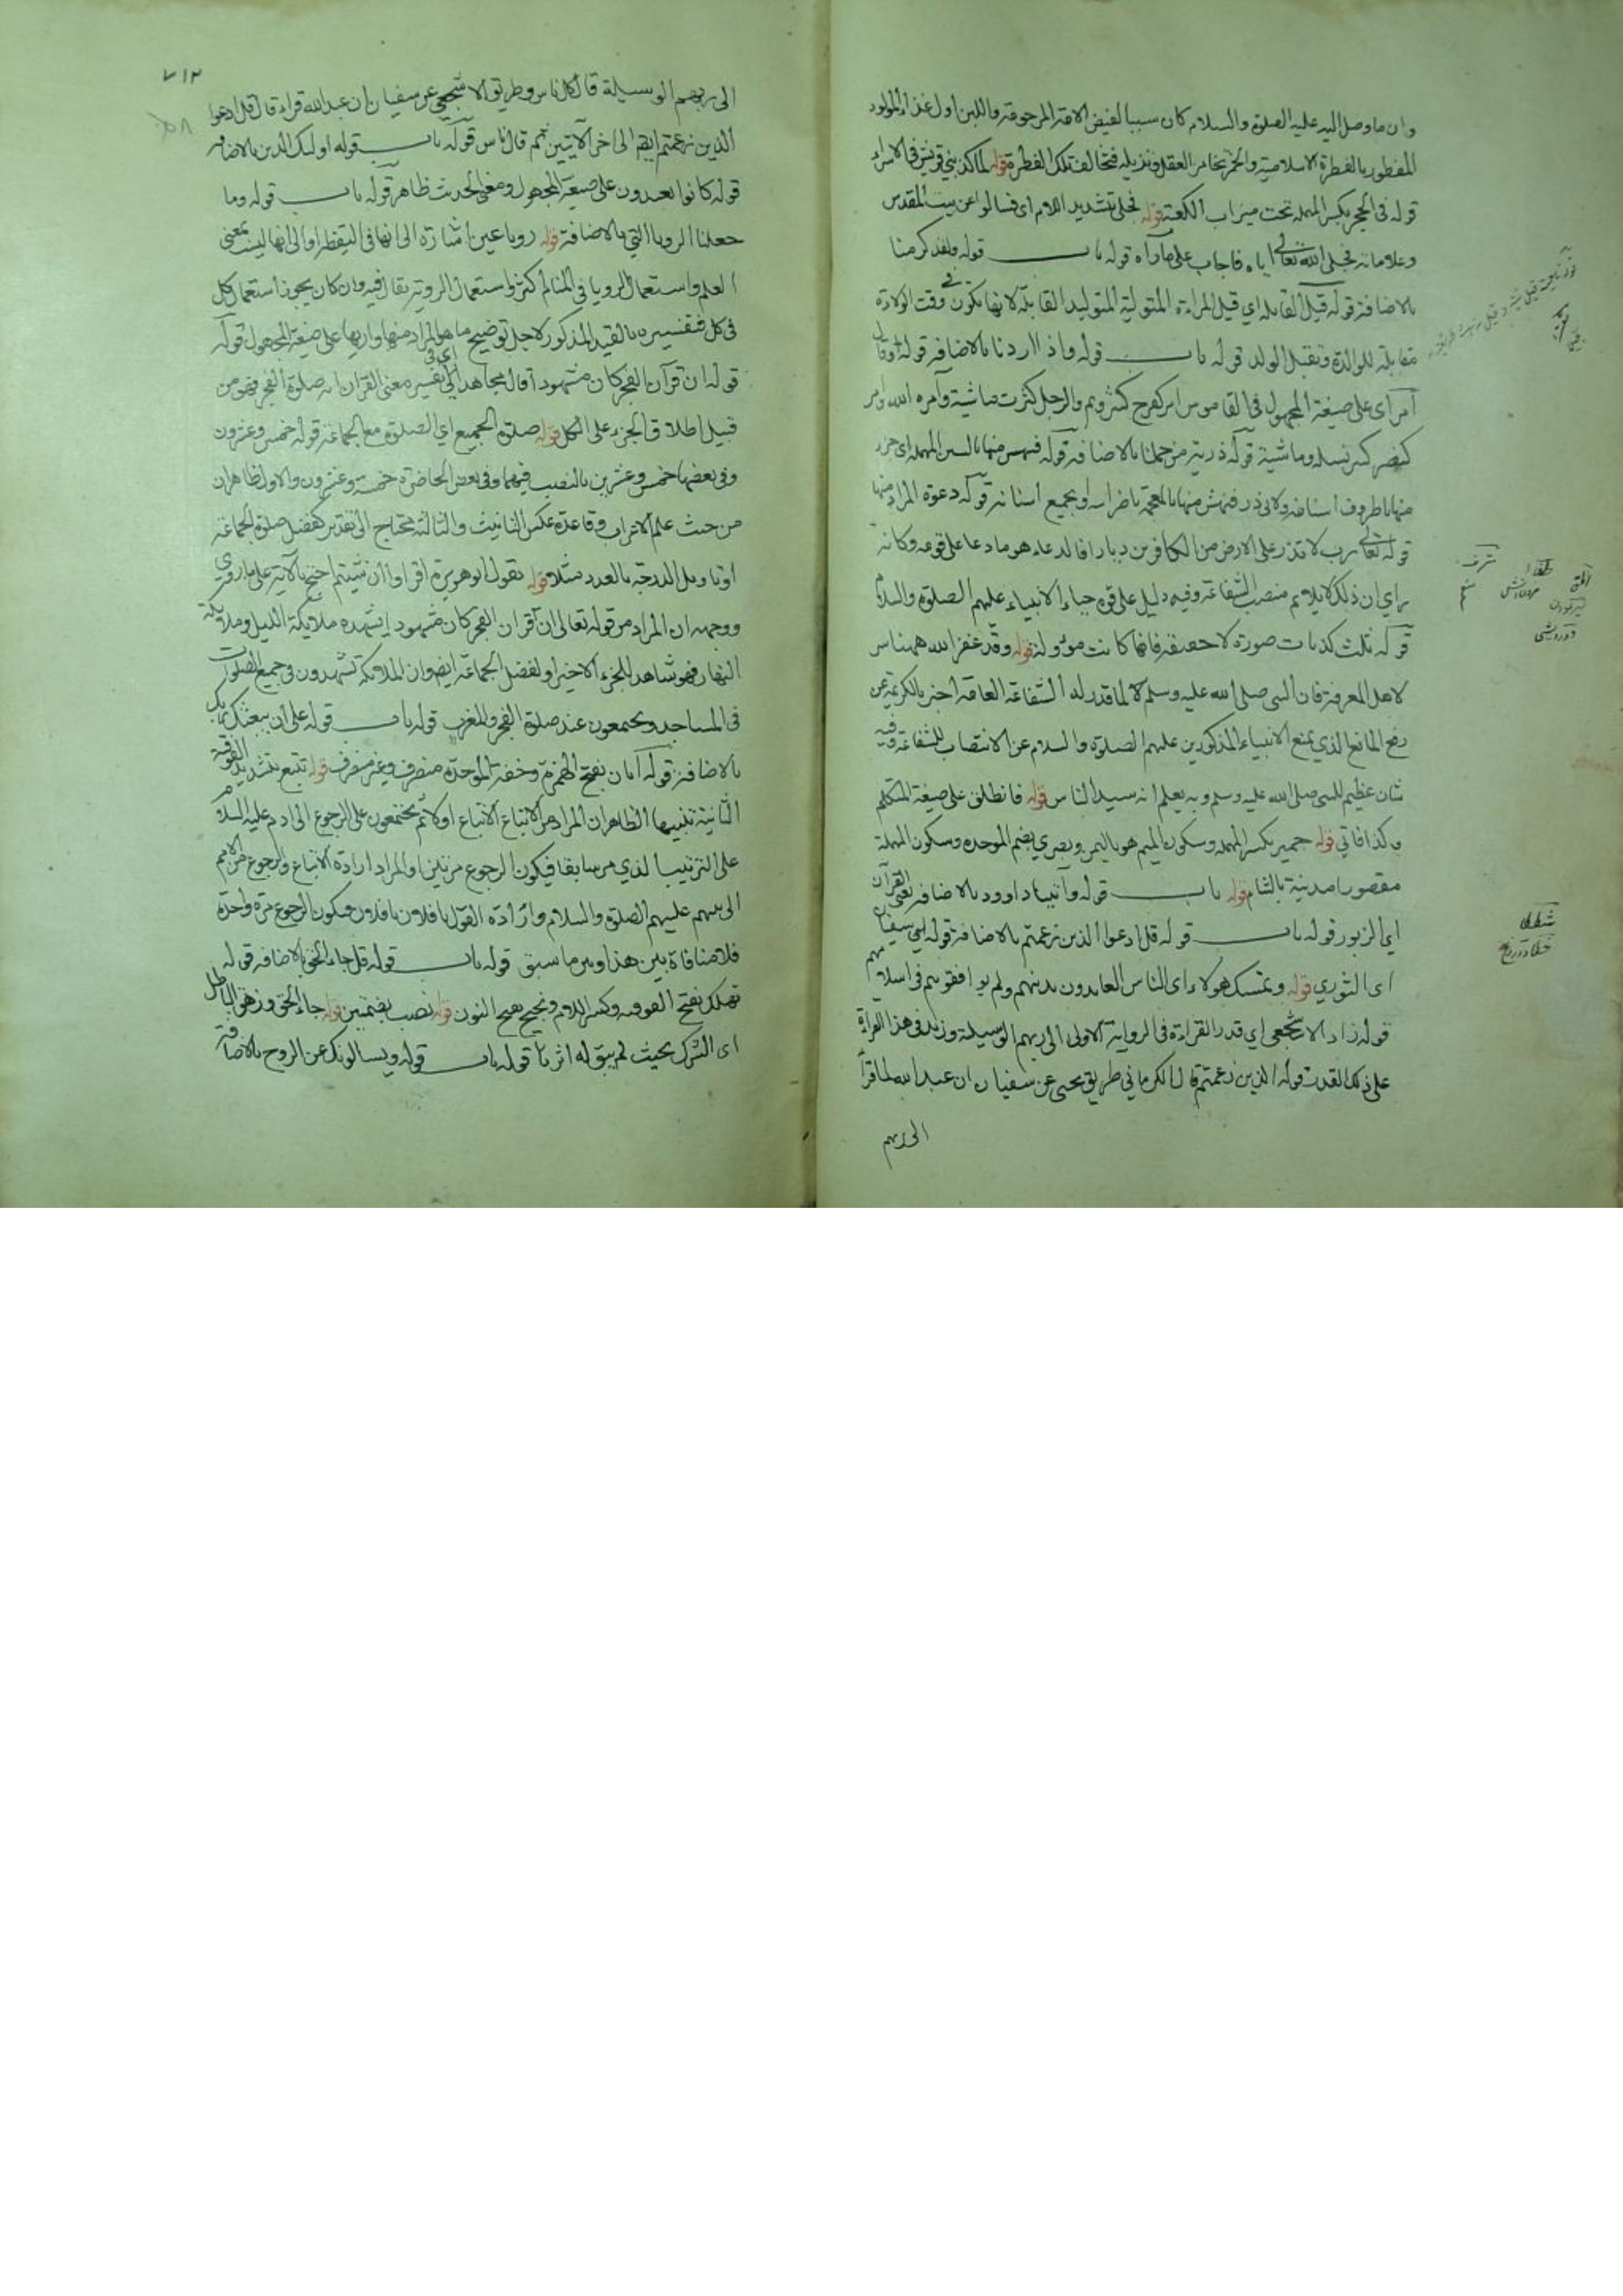 وان ما وصل اليه عليه الصلوة والسلام كان سببا لفيض الامة المرحومة واللبن اول غذاء المولود
المفطور بالفطرة الاسلامية والخمر يخامر العقل ويزيله فيخالف تلك الفطرة قوله لما كذبني قريش في الاسراء
قوله في الحجر بكسر المهملة تحت ميزاب الكعبة قوله تجلى بتشديد اللام اى فسالوا عن بيت المقدس
وعلاماته فجلى الله تعالى اياه فاجاب على ما رآه قوله باب قوله ولقد كرمنا
بالاضافة قوله قبيل القابلة اي قيل المراءة المتولية المتوليد القابلة لانها تكون في وقت الولادة
مقابلة للوالدة وتقبل الولد قوله باب قوله واذا اردنا بالاضافة قوله وقال
أمر اى على صيغة المجهول في القاموس امر كفرح كثر وتم والرجل كثرت ماشية وآمره الله وامر
كنصر كثر نسله وماشية قوله ذرية من حملنا بالاضافة قوله فنهس منها بالسين المهملة اى جزء
منها باطراف اسنانه ولابي ذر فنهش منها بالمعجمة باضراسه او بجميع اسنانه قوله دعوة المراد منها
قوله تعالى رب لا تذر على الارض من الكافرين ديارا فالدعاء هو ما دعا على قومه وكانه
راى ان ذلك لا يلايم منصب الشفاعة وفيه دليل على قوة حياء الانبياء عليهم الصلوة والسلام
قوله ثلث كذبات صورة لا حقيقة فانها كانت موولة قوله وقد غفر الله ههنا س
لاهل المعرفة فان النبى صلى الله عليه وسلم لما قدر له الشفاعة العامة اخبر بالكريمة عن
رفع المانع الذي يمنع الانبياء المذكورين عليهم الصلوة والسلام عن الانتصاب للشفاعة وفيه
شان عظيم للنبى صلى الله عليه وسلم وبه يعلم انه سيد الناس قوله فانطلق على صيغة المتكلم
وكذا فاتي قوله حمير بكسر المهملة وسكون الميم هو باليمن وبصرى بضم الموحدة وسكون المهملة
مقصورا مدينة بالشام قوله باب قوله وآتينا داوود بالاضافة يعنى القرآن
اي الزبور قوله باب قوله قل ادعوا الذين زعمتم بالاضافة قوله ابي سفيان
اى الثوري قوله وتمسك هولاء اى الناس العابدون بدينهم ولم يوافقوهم في اسلامهم
قوله زاد الاشجعى اي قدر القراءة في الرواية الاولى الى ربهم الوسيلة وزيد في هذا القراءة
على ذلك القدر قوله الذين زعمتم قال الكرماني طريق يحيى عن سفيان ان عبد الله لما قرأ
الى ربهم
٧١٢
الى ربهم الوسيلة قال كان ناس وطريق الاشجعى عن سفيان ان عبد الله قراء قال قل ادعوا
الذين زعمتم ايهم الى اخر الآيتين ثم قال ناس قوله باب قوله اولئك الذين بالاضافة
قوله كانوا يعبدون على صيغة المجهول ومعنى الحديث ظاهر قوله باب قوله وما
جعلنا الرويا التي بالاضافة قوله رويا عين اشارة الى انها في اليقظة او الى انها ليست بمعنى
العلم واستعمال الرويا في المنام اكثر واستعمال الروية يقال فيه وان كان يجوز استعمال كل
في كل فتفسيره بالقيد المذكور لاجل توضيح ما هو المراد منها واريها على صيغة المجهول قوله
قوله ان قرآن الفجر كان مشهودا قال مجاهد اي في تفسير معنى القرآن انه صلوة الفجر فهو من
قبيل اطلاق الجزء على الكل قوله صلوة الجميع اي الصلوة مع الجماعة قوله خمس وعشرون
وفي بعضها خمس وعشرين بالنصب فيهما وفي بعض الحاضرة خمسة وعشرون والاول ظاهر ان
من حيث علم الاعراب وقاعدة عكس التانيث والثالثة محتاج الى تقدير كفضل صلوة الجماعة
او تاويل الدرجة بالعدد مثلا قوله يقول ابو هريرة اقراوا ان شيتم احتج بالآية على ما روى
ووجهه ان المراد من قوله تعالى ان قرآن الفجر كان مشهودا يشهده ملايكة الليل وملايكة
النهار فهو شاهد للجزء الاخير او لفضل الجماعة ايضا وان الملايكة تشهدون في جميع الصلوات
في المساجد ويجتمعون عند صلوة الفجر والمغرب قوله باب قوله على ان يبعثك ربك
بالاضافة قوله آبان بفتح الهمزة وخفة الموحدة منصرف وغير منصرف قوله تتبع بتشديد الفوقية
الثانية نبيها الظاهر ان المراد من الاتباع الاتباع اولا ثم يجتمعون على الرجوع الى ادم عليه السلام
على الترتيب الذي مر سابقا فيكون الرجوع مرتين او المراد ارادة الاتباع والرجوع من الامم
الى نبيهم عليهم الصلوة والسلام وارادة القول يا فلان يا فلان فيكون الرجوع مرة واحدة
فلا منافاة بين هذا وبين ما سبق قوله باب قوله قل جاء الحق بالاضافة قوله
تهلك بفتح الفوقية وكسر اللام ونجيح بفتح النون قوله نصب بضمتين قوله جاء الحق وزهق الباطل
اى الشرك بحيث لم يبق له اثر ما قوله باب قوله ويسالونك عن الروح بالاضافة